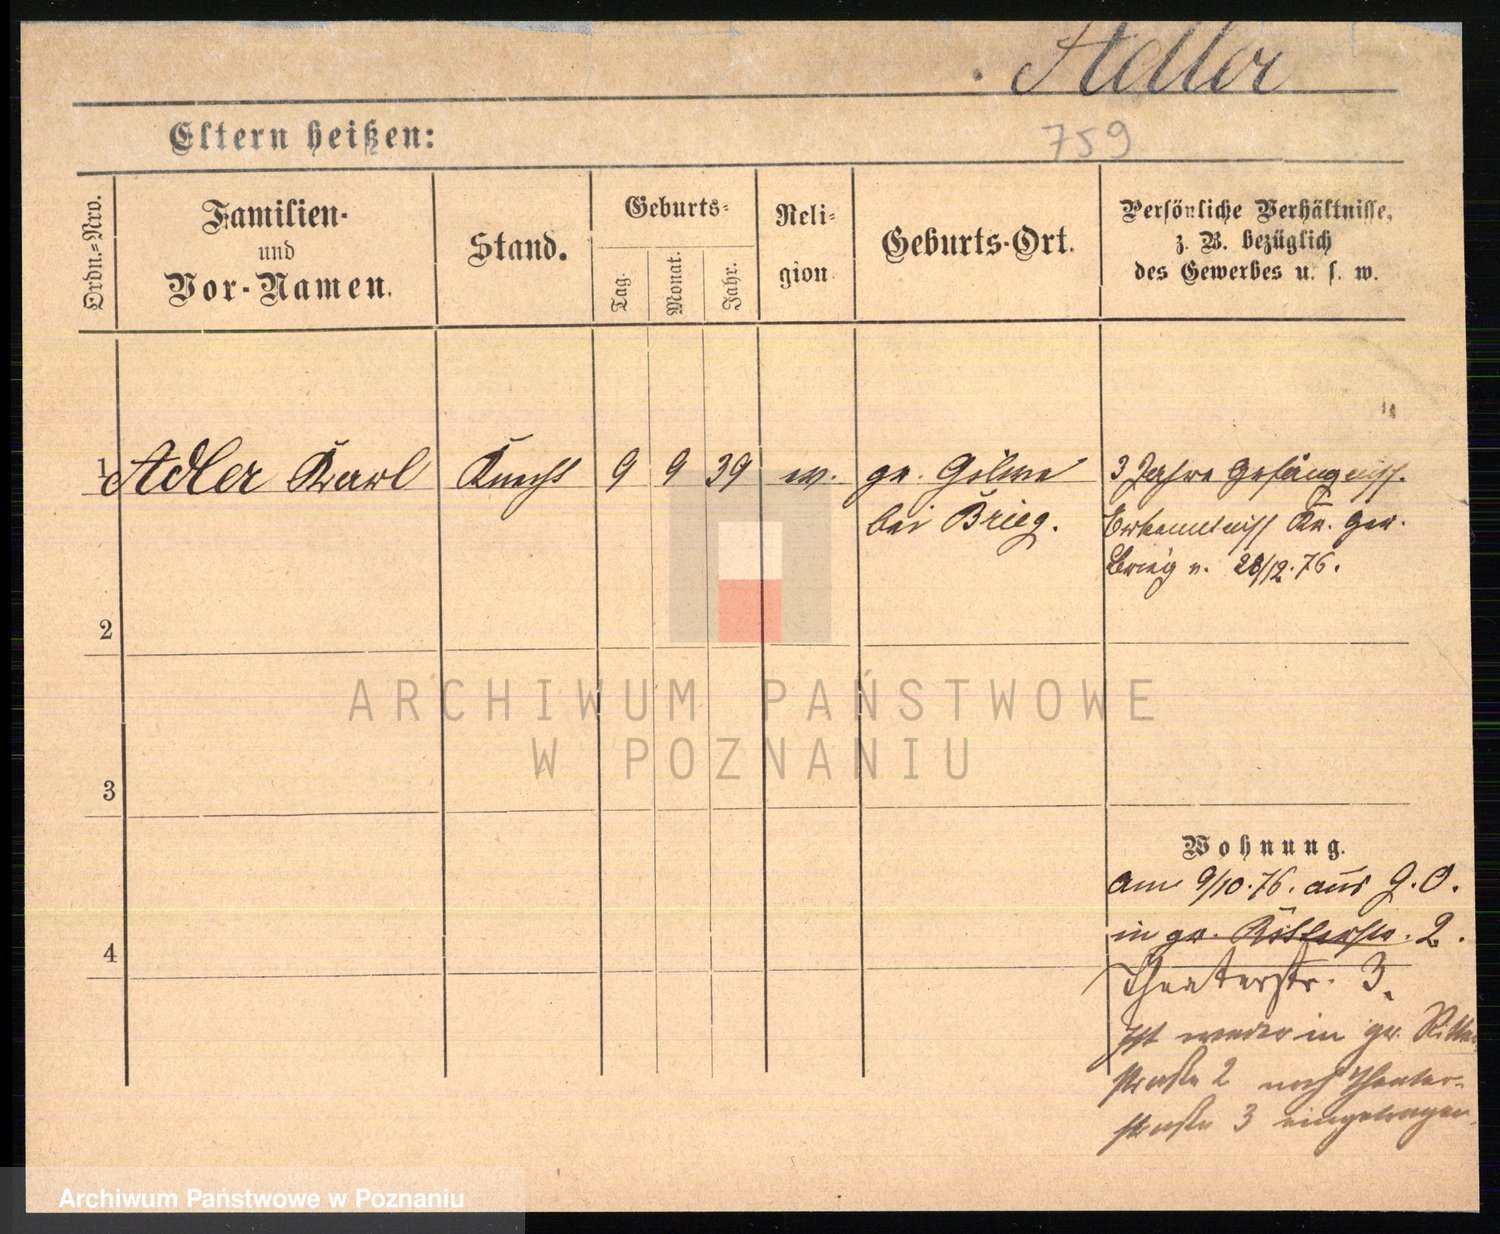 Adler
Eltern heißen:
759
Ordn.=Nro.
Familien-
und
Vor-Namen.
Stand.
Geburts=
Tag.
Monat.
Jahr.
Reli=
gion
Geburts-Ort.
Persönliche Verhältnisse,
z. B. bezüglich
des Gewerbes u. s. w.
1 Adler Karl Knecht 9 9 39 ev. gr. bei Brieg.
3 Jahre Gefängniss.
Erkenntniss Kr. Ger.
Brieg v. 28/12.76.
2
3
4
Wohnung.
am 9/10.76. aus G. O.
in gr. Ritterstr. 2.
Theaterstr. 3.
Ist weder in gr. Ritter
straße 2 noch Theater-
straße 3 eingetragen.
ARCHIWUM PAŃSTWOWE
W POZNANIU
Archiwum Państwowe w Poznaniu